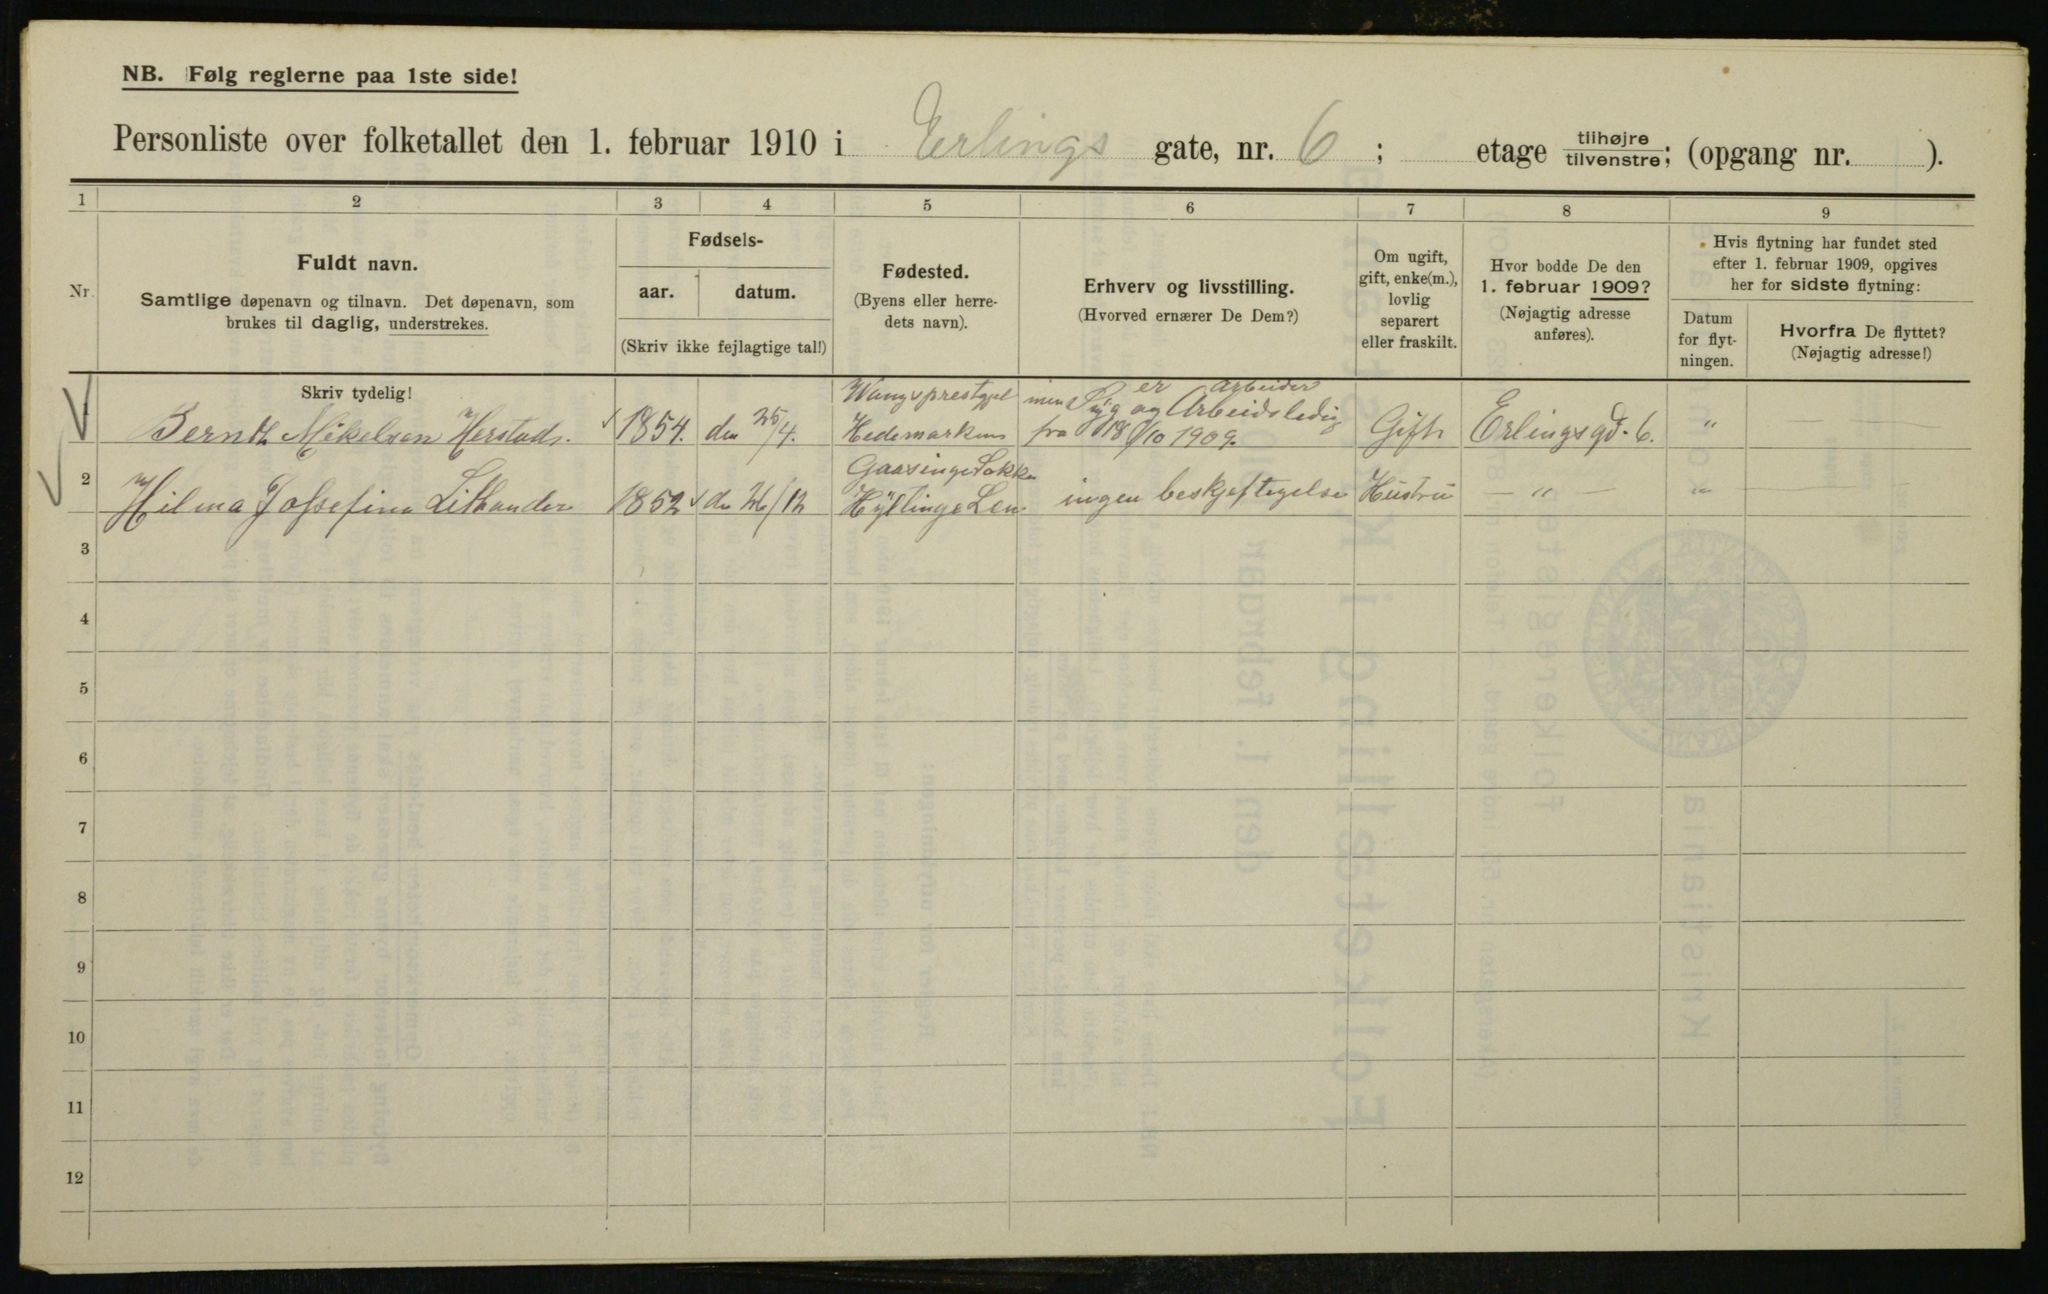 NB. Følg reglerne paa 1ste side!
Personliste over folketallet den 1. februar 1910 i Erlings gate, nr. 6 ; etage tilhøjre tilvenstre; (opgang nr. ).
1 2 3 4 5 6 7 8 9
Nr.
Fuldt navn.
Samtlige døpenavn og tilnavn. Det døpenavn, som
brukes til daglig, understrekes.
Fødsels-
aar. datum.
(Skriv ikke fejlagtige tal!)
Fødested.
(Byens eller herre-
dets navn).
Erhverv og livsstilling.
(Hvorved ernærer De Dem?)
Om ugift,
gift, enke(m.),
lovlig
separert
eller fraskilt.
Hvor bodde De den
1. februar 1909?
(Nøjagtig adresse
anføres).
Hvis flytning har fundet sted
efter 1. februar 1909, opgives
her for sidste flytning:
Datum
for flyt-
ningen.
Hvorfra De flyttet?
(Nøjagtig adresse!)
Skriv tydelig!
1 Bernth Mikelsen Herstad. 1854. den 25/4. Wangsprestgjel
Hedemarken er Arbeider
men Syg og Arbeidsledig
fra 18/10 1909. Gift Erlingsgd. 6. "
2 Hilma Jossefina Lithander 1852 den 26/12 Gaasinge Sokken
Hyltinge Len ingen beskjeftegelse Hustru — " — "
3
4
5
6
7
8
9
10
11
12